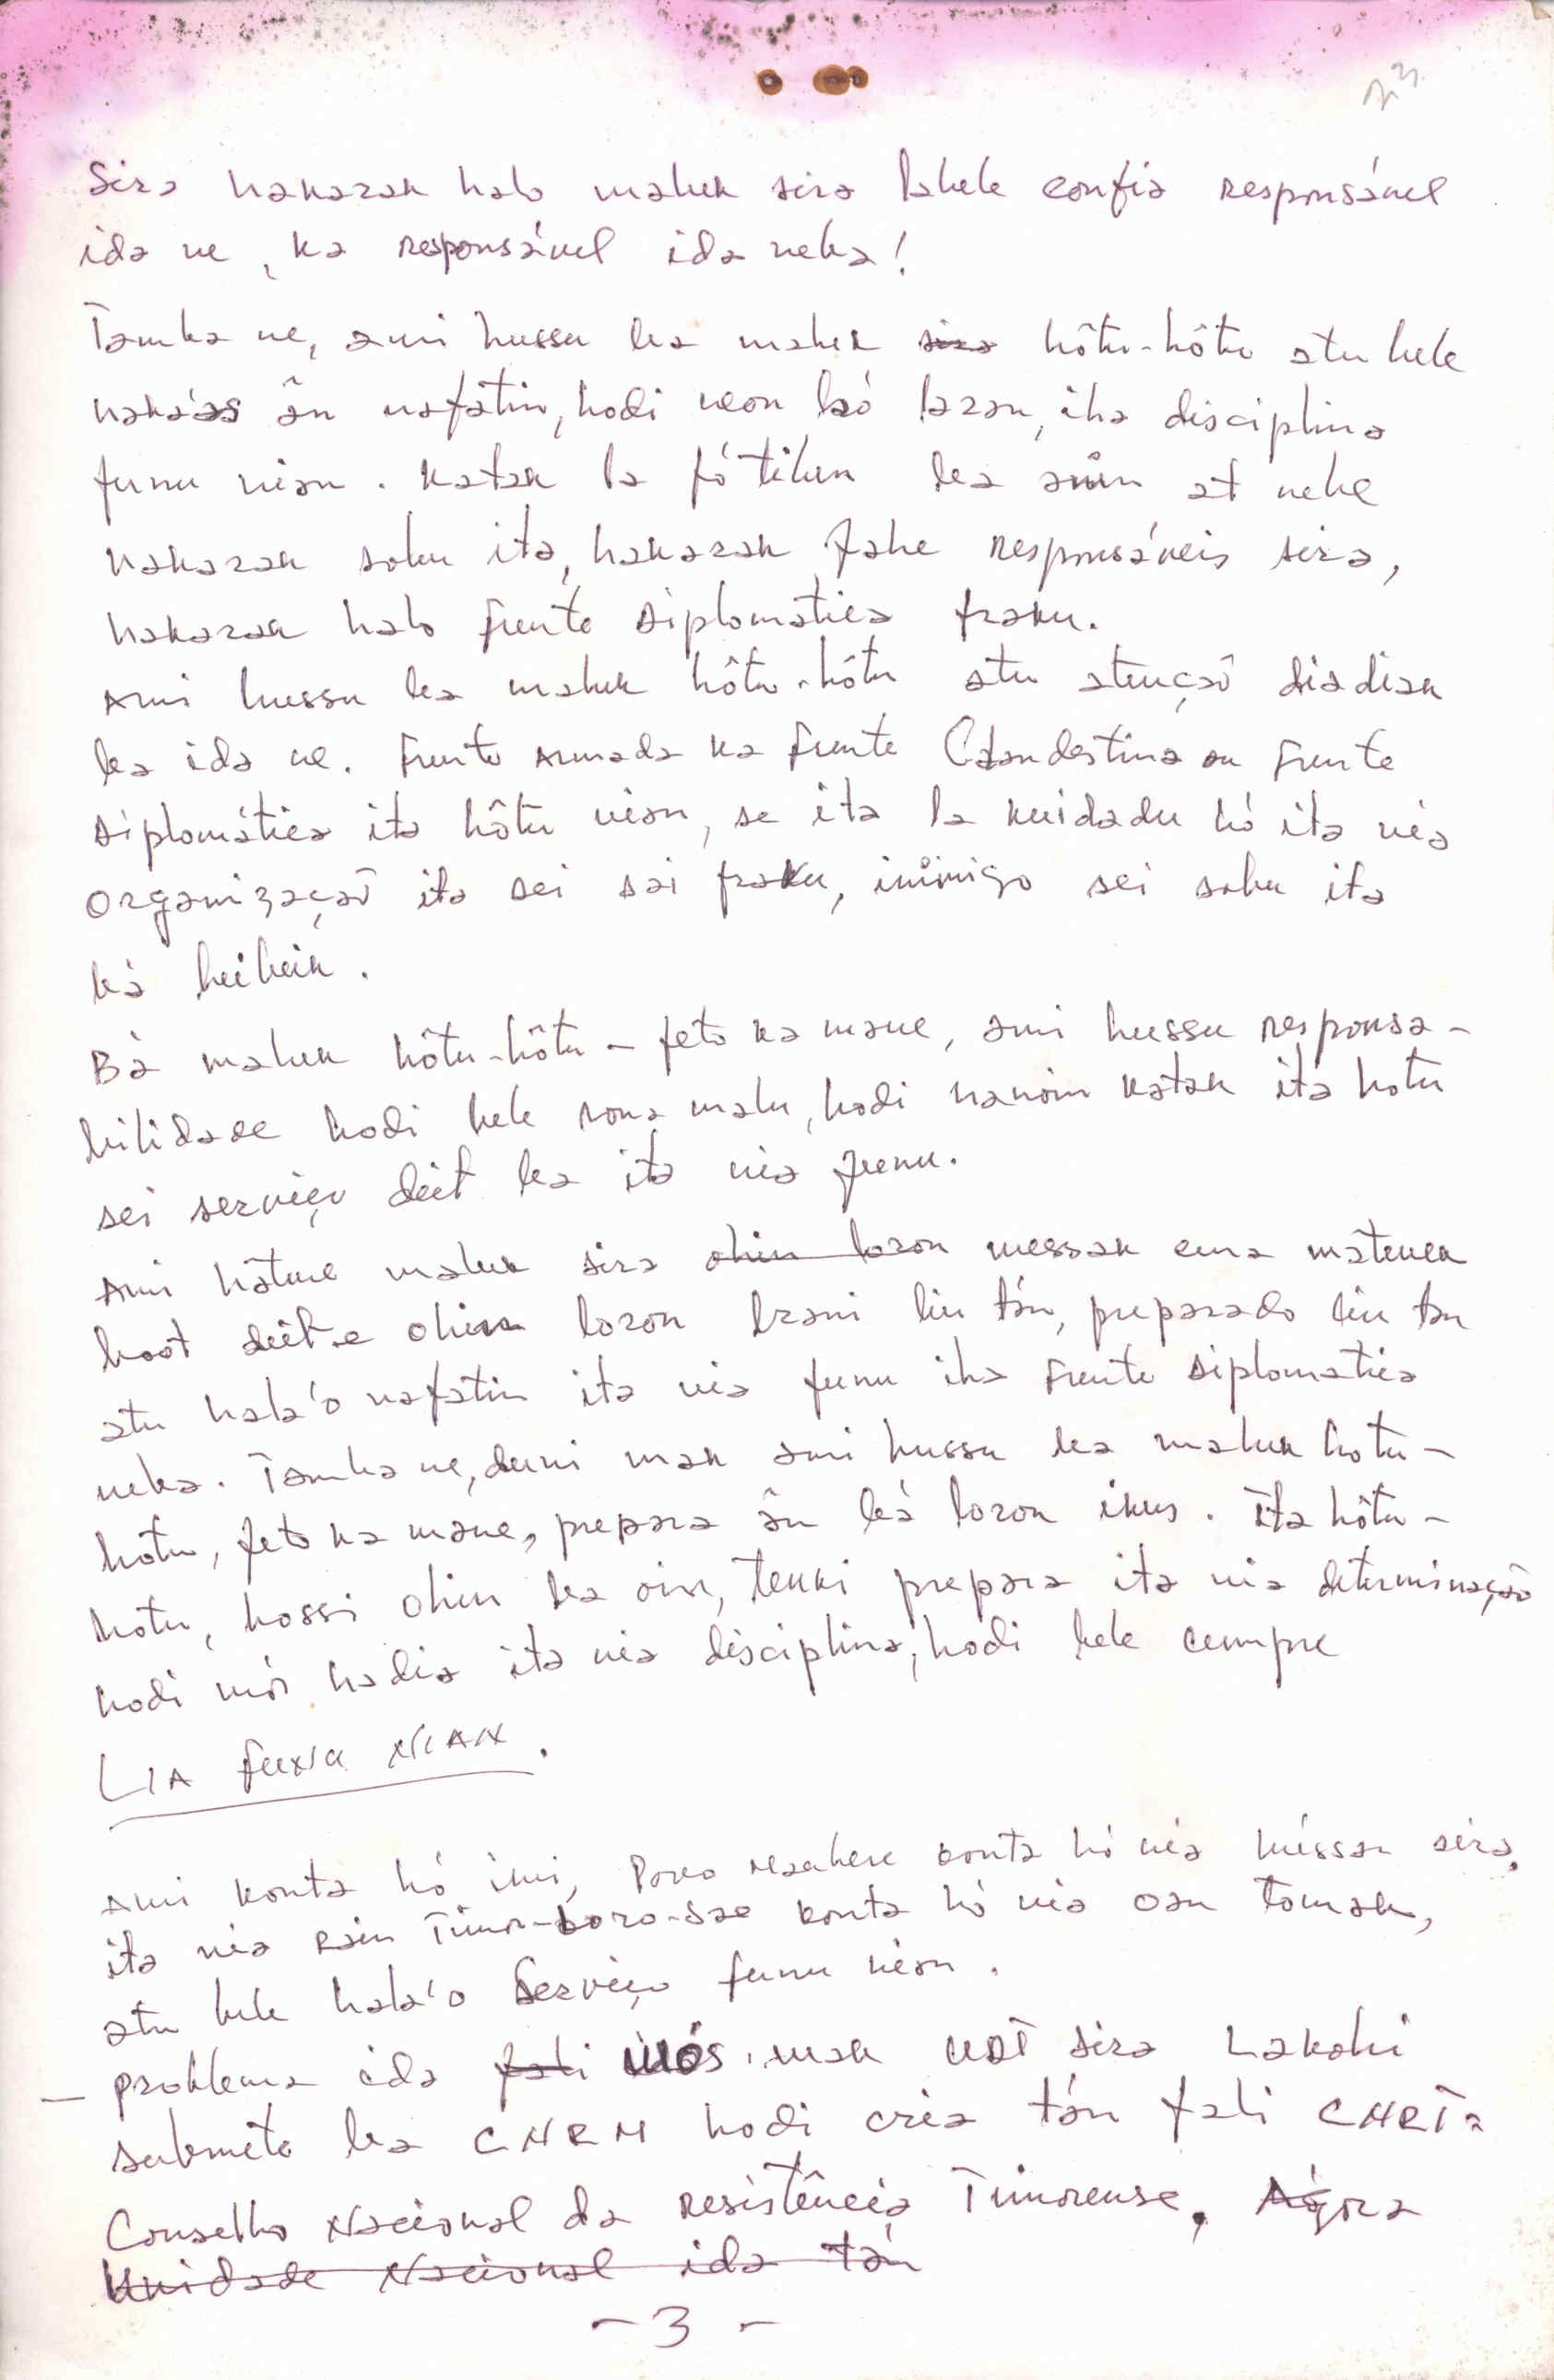 Sira hakarak halo maluk sira labele confia responsável
ida ne, ka responsável ida neba!
Tamba ne, ami hussu ba maluk sira hôtu-hôtu atu bele
haka'as ân nafatin, hodi neon laó laran, iha disciplina
funu nian. Katak la fó tilun ba anin at nebe
hakarak sobu ita, hakarak fahe responsáveis sira,
hakarak halo Frente Diplomatica fraku.
Ami hussu ba maluk hôtu-hôtu atu atençaõ diadiak
ba ida ne. Frente Armada ka Frente Clandestina ou Frente
Diplomática ita hôtu nian, se ita la kuidadu hó ita nia
Organizaçaõ ita sei sai fraku, inimigo sei sobu ita
bá beibeik.
Bà maluk hôtu-hôtu - feto ka mane, ami hussu responsa-
bilidade hodi bele rona malu, hodi hanoin katak ita hotu
sei serviço deit ba ita nia funu.
Ami hâtene maluk sira ohin loron messak ema matenek
boot deit e ohin loron brani liu tán, preparado liu tan
atu hala'o nafatin ita nia funu iha Frente Diplomatica
neba. Tamba ne, duni mak ami hussu ba maluk hotu-
hotu, feto ka mane, prepara ân bá loron ikus. Ita hôtu-
hotu, hossi ohin ba oin, tenki prepara ita nia determinação
hodi mós hadia ita nia disciplina, hodi bele cumpre
LIA FUNU NIAN.
Ami konta hó imi, Povo Maubere konta hó nia bíssan sira,
ita nia Rain Timor-Loro-Sae konta hó nia oan tomak,
atu bele hala'o Serviço funu nian.
- Problema ida fali mós. mak UDT sira Lakohi
submete ba CNRM hodi cria tán fali CNRT=
Conselho Nacional da Resistência Timorense. Agora
Unidade Nacional ida tán
- 3 -